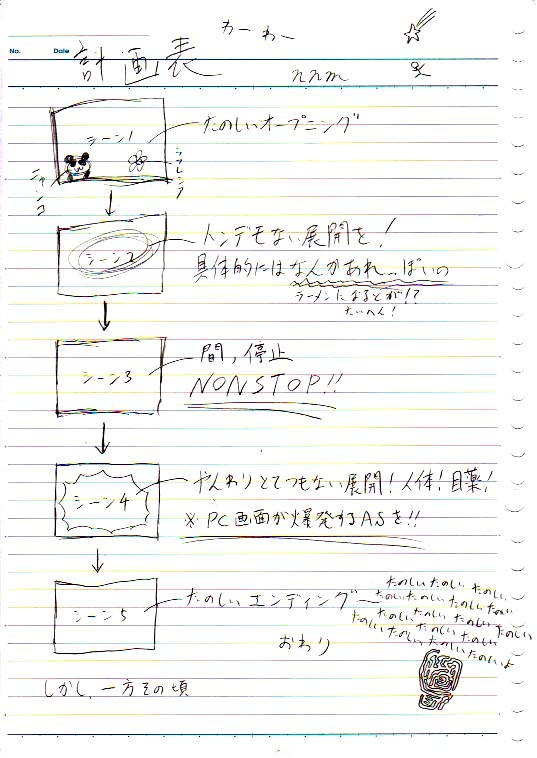 わーわー
No.
Date
計画表
nnm
シーン1
たのしいオープニング
ラフレシア
シーン2
トンデモない展開を!
具体的にはなんかあれ…っぽいの
ラーメンになるとが!?
たいへん!
シーン3
間,停止
NONSTOP!!
シーン4
やんわりとてつもない展開!人体!目薬!
※PC画面が爆発するASを!!
シーン5
たのしいエンディング
たのしいたのしいたのしい
たのしいたのしいたのしいたのしい
たのしいたのしいたのしいたのしい
たのしいたのしいたのしいたのしい
たのしいたのしいたのしいよ
おわり
しかし、一方その頃